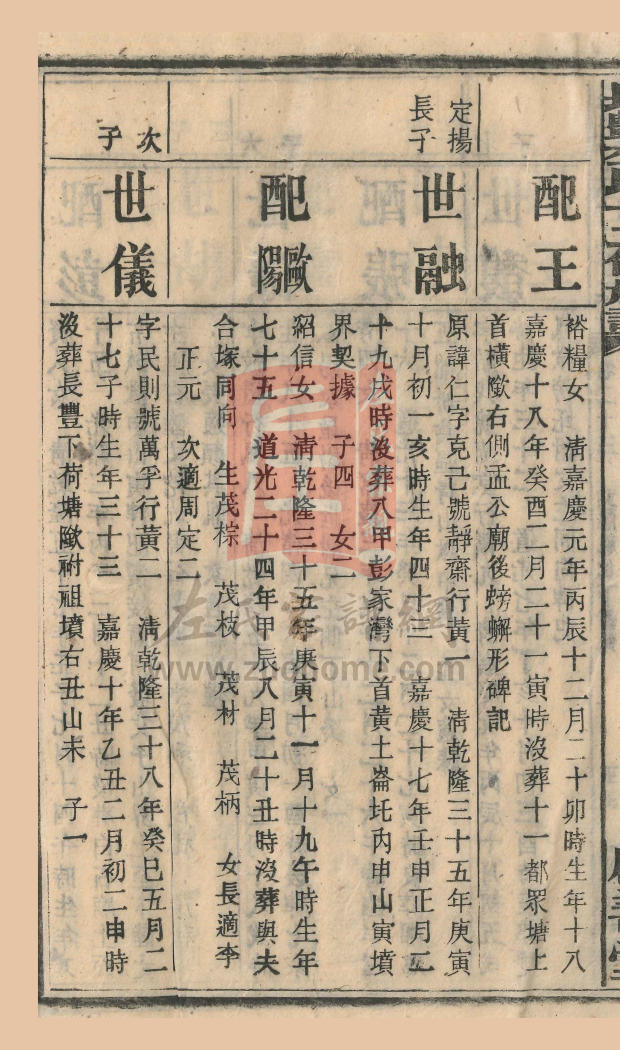 配王
裕糧女　清嘉慶元年丙辰十二月二十卯時生年十八
嘉慶十八年癸酉二月二十一寅時沒葬十一都眾塘上
首橫歐右側孟公廟後螃蠏形碑記
定揚
長子
世融
原諱仁字克己號靜齋行黃一　清乾隆三十五年庚寅
十月初一亥時生年四十三　嘉慶十七年壬申正月二
十九戌時沒葬八甲彭家灣下首黃土崙圫內申山寅墳
界契據　子四　女二
配歐陽
紹信女　清乾隆三十五年庚寅十一月十九午時生年
七十五　道光二十四年甲辰八月二十丑時沒葬與夫
合塚同向　生茂棕　茂枝　茂材　茂柄　女長適李
正元　次適周定二
次子
世儀
字民則號萬孚行黃二　清乾隆三十八年癸巳五月二
十七子時生年三十三　嘉慶十年乙丑二月初二申時
沒葬長豐下荷塘歐祔祖墳右丑山未　子一
左氏家譜網